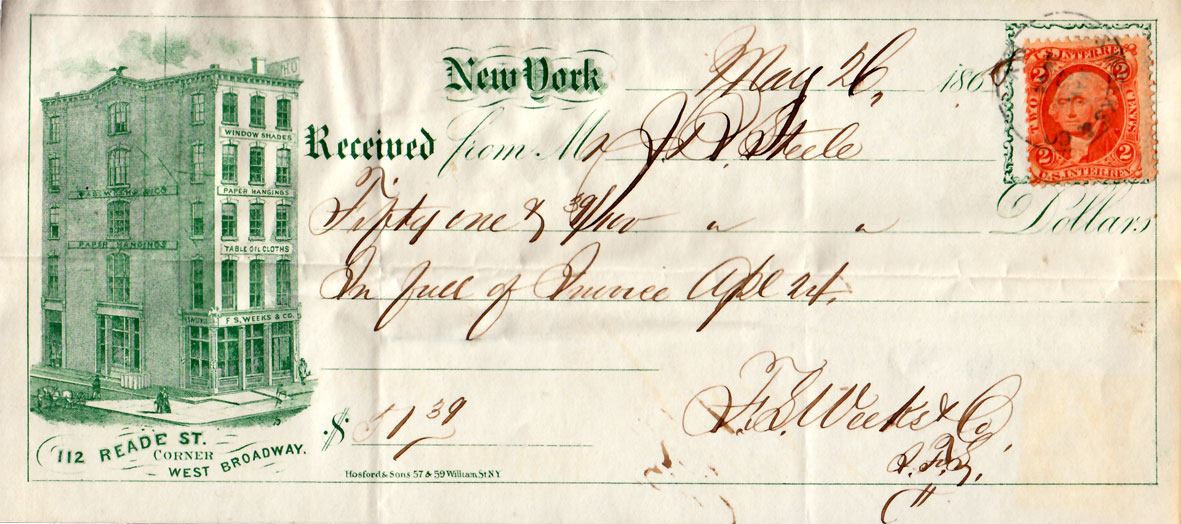 New York May 26, 186
Received from Mr J. P. Steele
Fifty one & 39/100 " " Dollars
In full of Invoice Apl 24.
F. S. Weeks & Co.
$ 51 39
Hosford & Sons 57 & 59 William St N Y
WINDOW SHADES
PAPER HANGINGS
PAPER HANGINGS
TABLE OIL CLOTHS
F. S. WEEKS & CO.
112 READE ST.
CORNER
WEST BROADWAY.
2 U.S. INTER. REV. 2
TWO CENTS
2 U.S. INTER. REV. 2